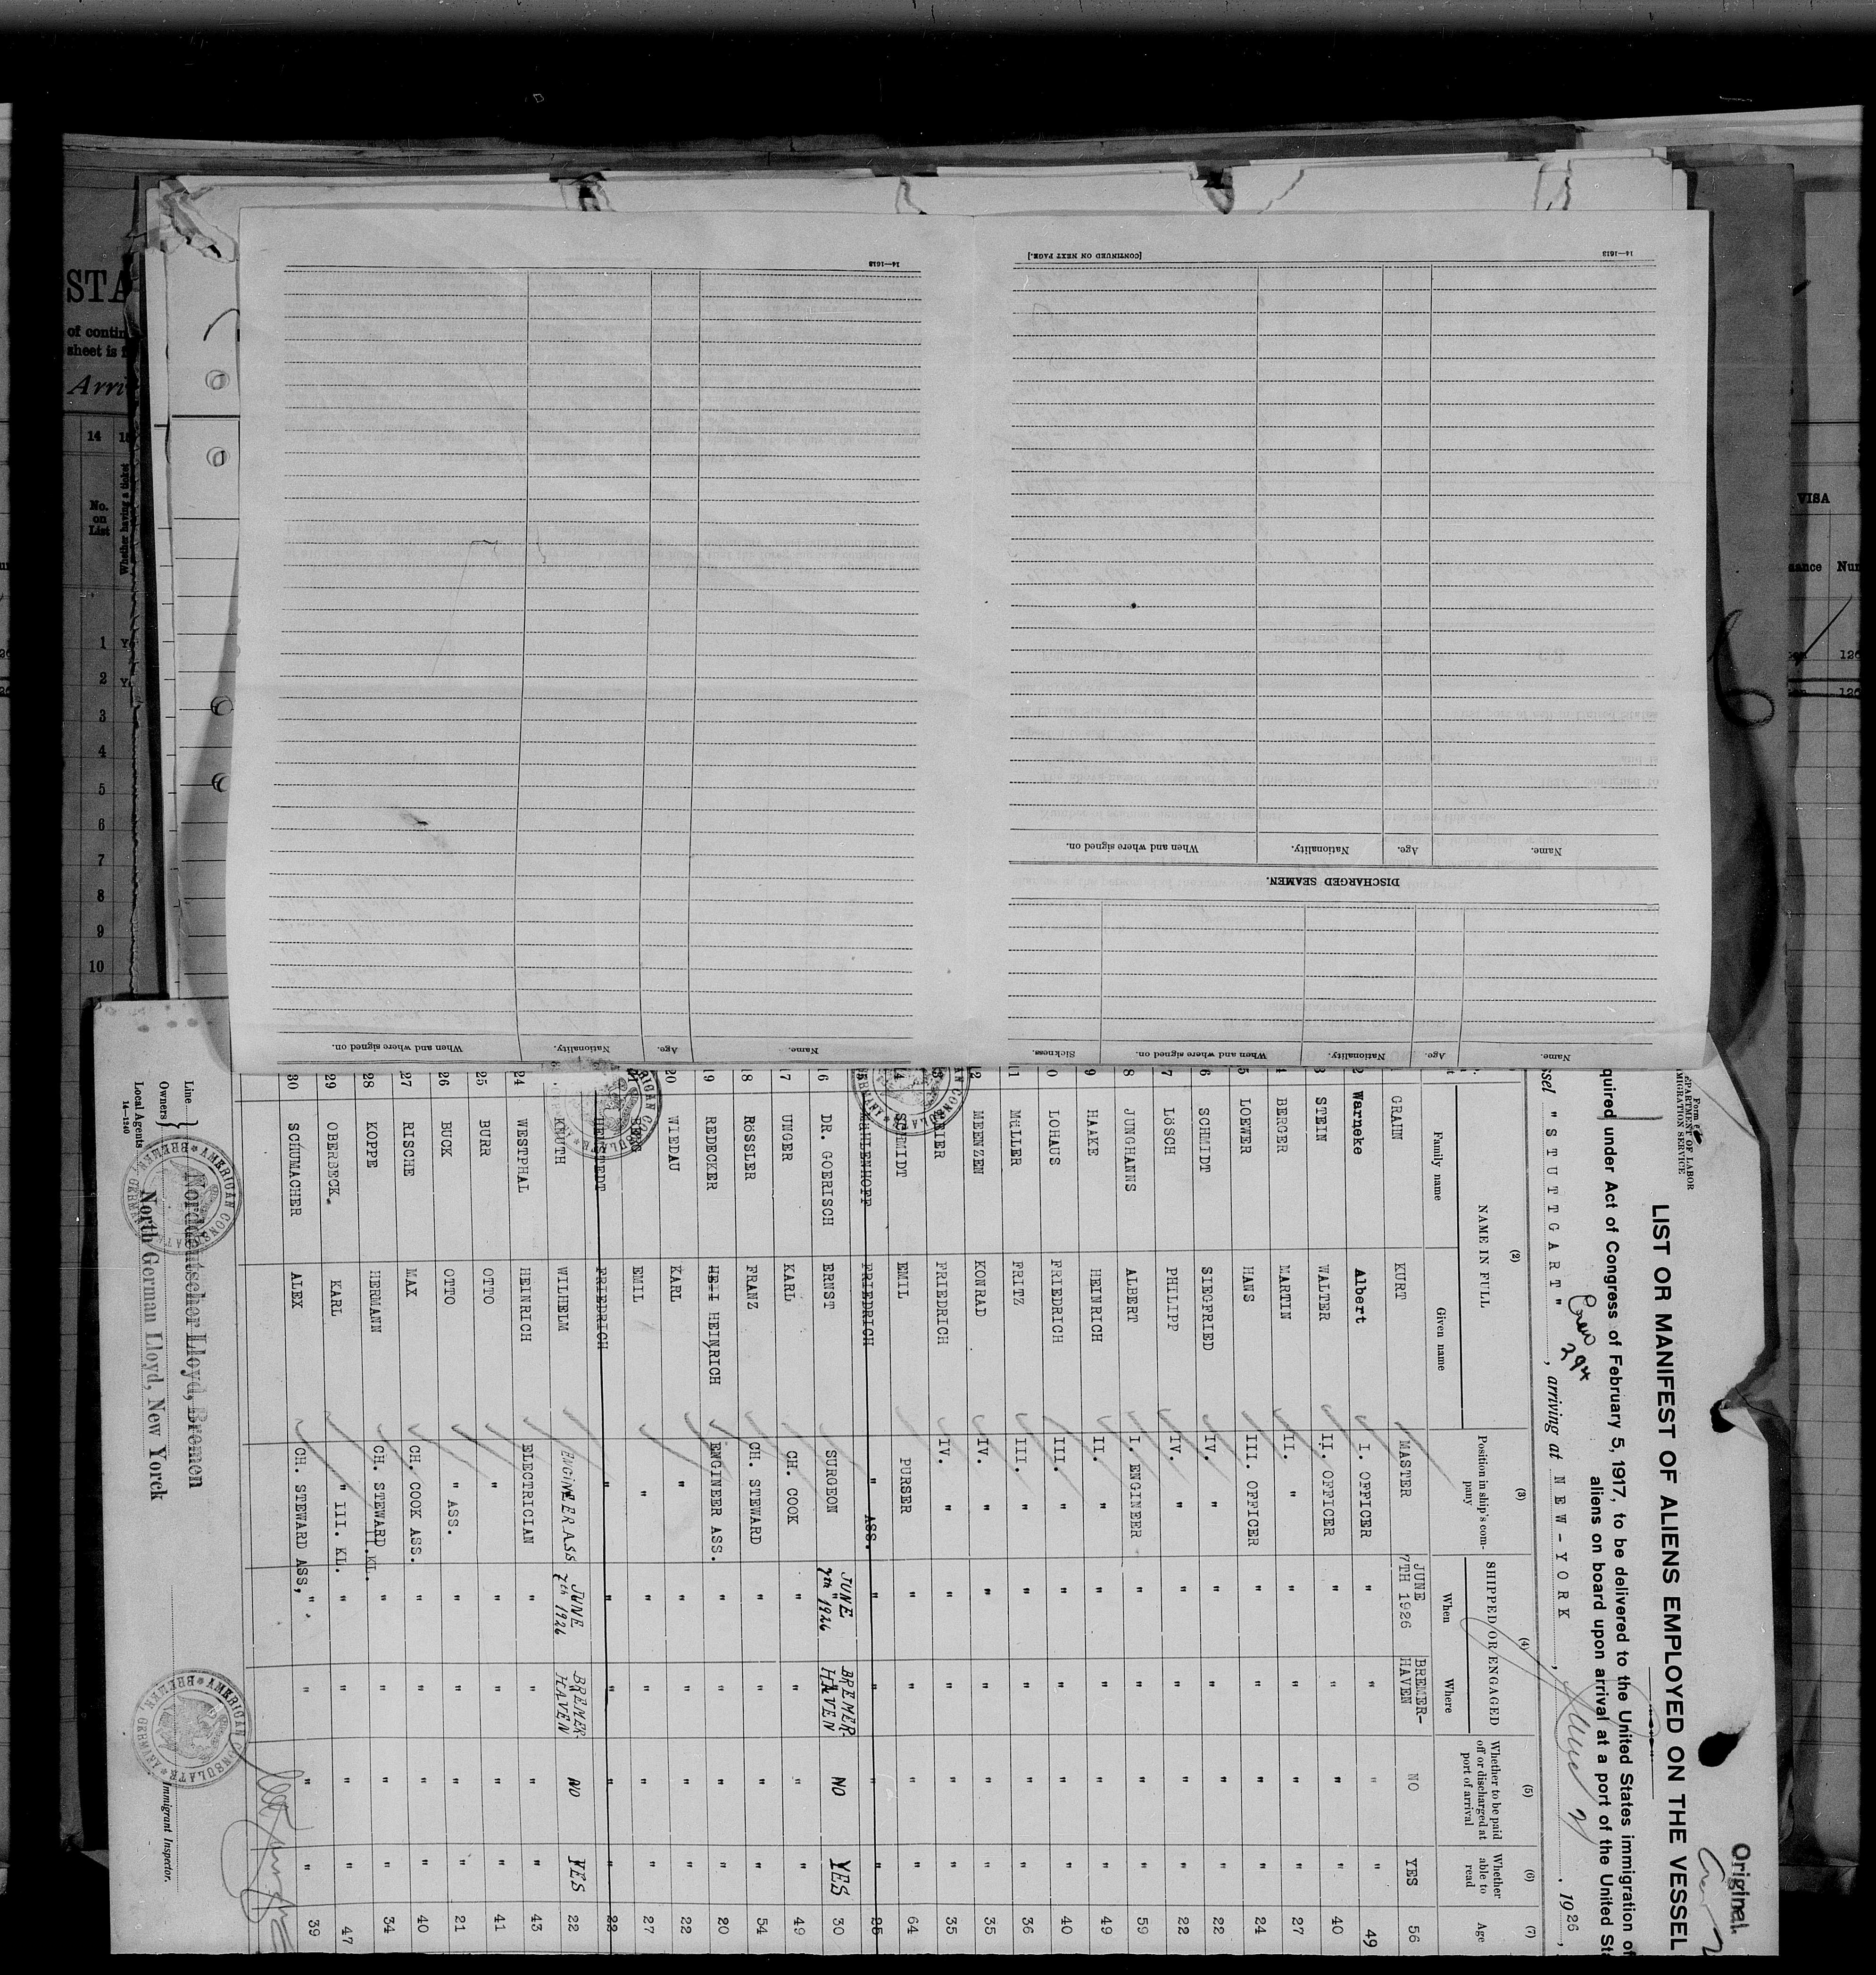 STA
of contin
sheet is f
Arri
14
No.
on
List
Whether having a ticket
1
2
3
4
5
6
7
8
9
10
VISA
14—1613
[CONTINUED ON NEXT PAGE.]
14—1613
Name.
Age.
Nationality.
When and where signed on.
DISCHARGED SEAMEN.
Name.
Age.
Nationality.
When and where signed on.
Sickness.
Name.
Age.
Nationality.
When and where signed on.
Original
LIST OR MANIFEST OF ALIENS EMPLOYED ON THE VESSEL
quired under Act of Congress of February 5, 1917, to be delivered to the United States immigration of
aliens on board upon arrival at a port of the United Sta
ssel "STUTTGART", arriving at NEW-YORK, June 21, 1926,
Crew 294
(2)
NAME IN FULL
Family name
Given name
(3)
Position in ship's company
(4)
SHIPPED OR ENGAGED
When
Where
(5)
Whether to be paid off or discharged at port of arrival
(6)
Whether able to read
(7)
Age
GRAHN KURT MASTER JUNE 7TH 1926 BREMER-HAVEN NO YES 56
2 Warneke Albert I. OFFICER " " " " 49
3 STEIN WALTER II. OFFICER " " " " 40
4 BERGER MARTIN II. " " " " " 27
5 LOEWER HANS III. OFFICER " " " " 24
6 SCHMIDT SIEGFRIED IV. " " " " " 22
7 LÖSCH PHILIPP IV. " " " " " 22
8 JUNGHANNS ALBERT I. ENGINEER " " " " 59
9 HAAKE HEINRICH II. " " " " " 49
10 LOHAUS FRIEDRICH III. " " " " " 40
11 MÜLLER FRITZ III. " " " " " 36
12 MEENZEN KONRAD IV. " " " " " 35
13 MEIER FRIEDRICH IV. " " " " " 35
14 SCHMIDT EMIL PURSER " " " " 64
15 DAHLENHOFF FRIEDRICH " ASS. " " " " 25
16 DR. GOERISCH ERNST SURGEON JUNE 7th 1926 BREMER HAVEN NO YES 30
17 UNGER KARL CH. COOK " " " " 49
18 RÖSSLER FRANZ CH. STEWARD " " " " 54
19 REDECKER HEINRICH ENGINEER ASS. " " " " 20
20 WIEDAU KARL " " " " " 22
EMIL " " " " " 27
FRIEDRICH " " " " " 22
KNUTH WILHELM ENGINEER ASS JUNE 7th 1926 BREMER HAVEN NO YES 22
24 WESTPHAL HEINRICH ELECTRICIAN " " " " 43
25 BURR OTTO " " " " " 41
26 BUCK OTTO " ASS. " " " " 21
27 RISCHE MAX CH. COOK ASS. " " " " 40
28 KOPPE HERMANN CH. STEWARD II.KL. " " " " 34
29 OBERBECK. KARL " III. KL. " " " " 47
30 SCHUMACHER ALEX CH. STEWARD ASS, " " " " 39
Line
Owners
Local Agents
14—1240
Norddeutscher Lloyd, Bremen
North German Lloyd, New Yorck
AMERICAN CONSULATE
BREMEN, GERMANY
AMERICAN CONSULATE
BREMEN, GERMANY
Immigrant Inspector.